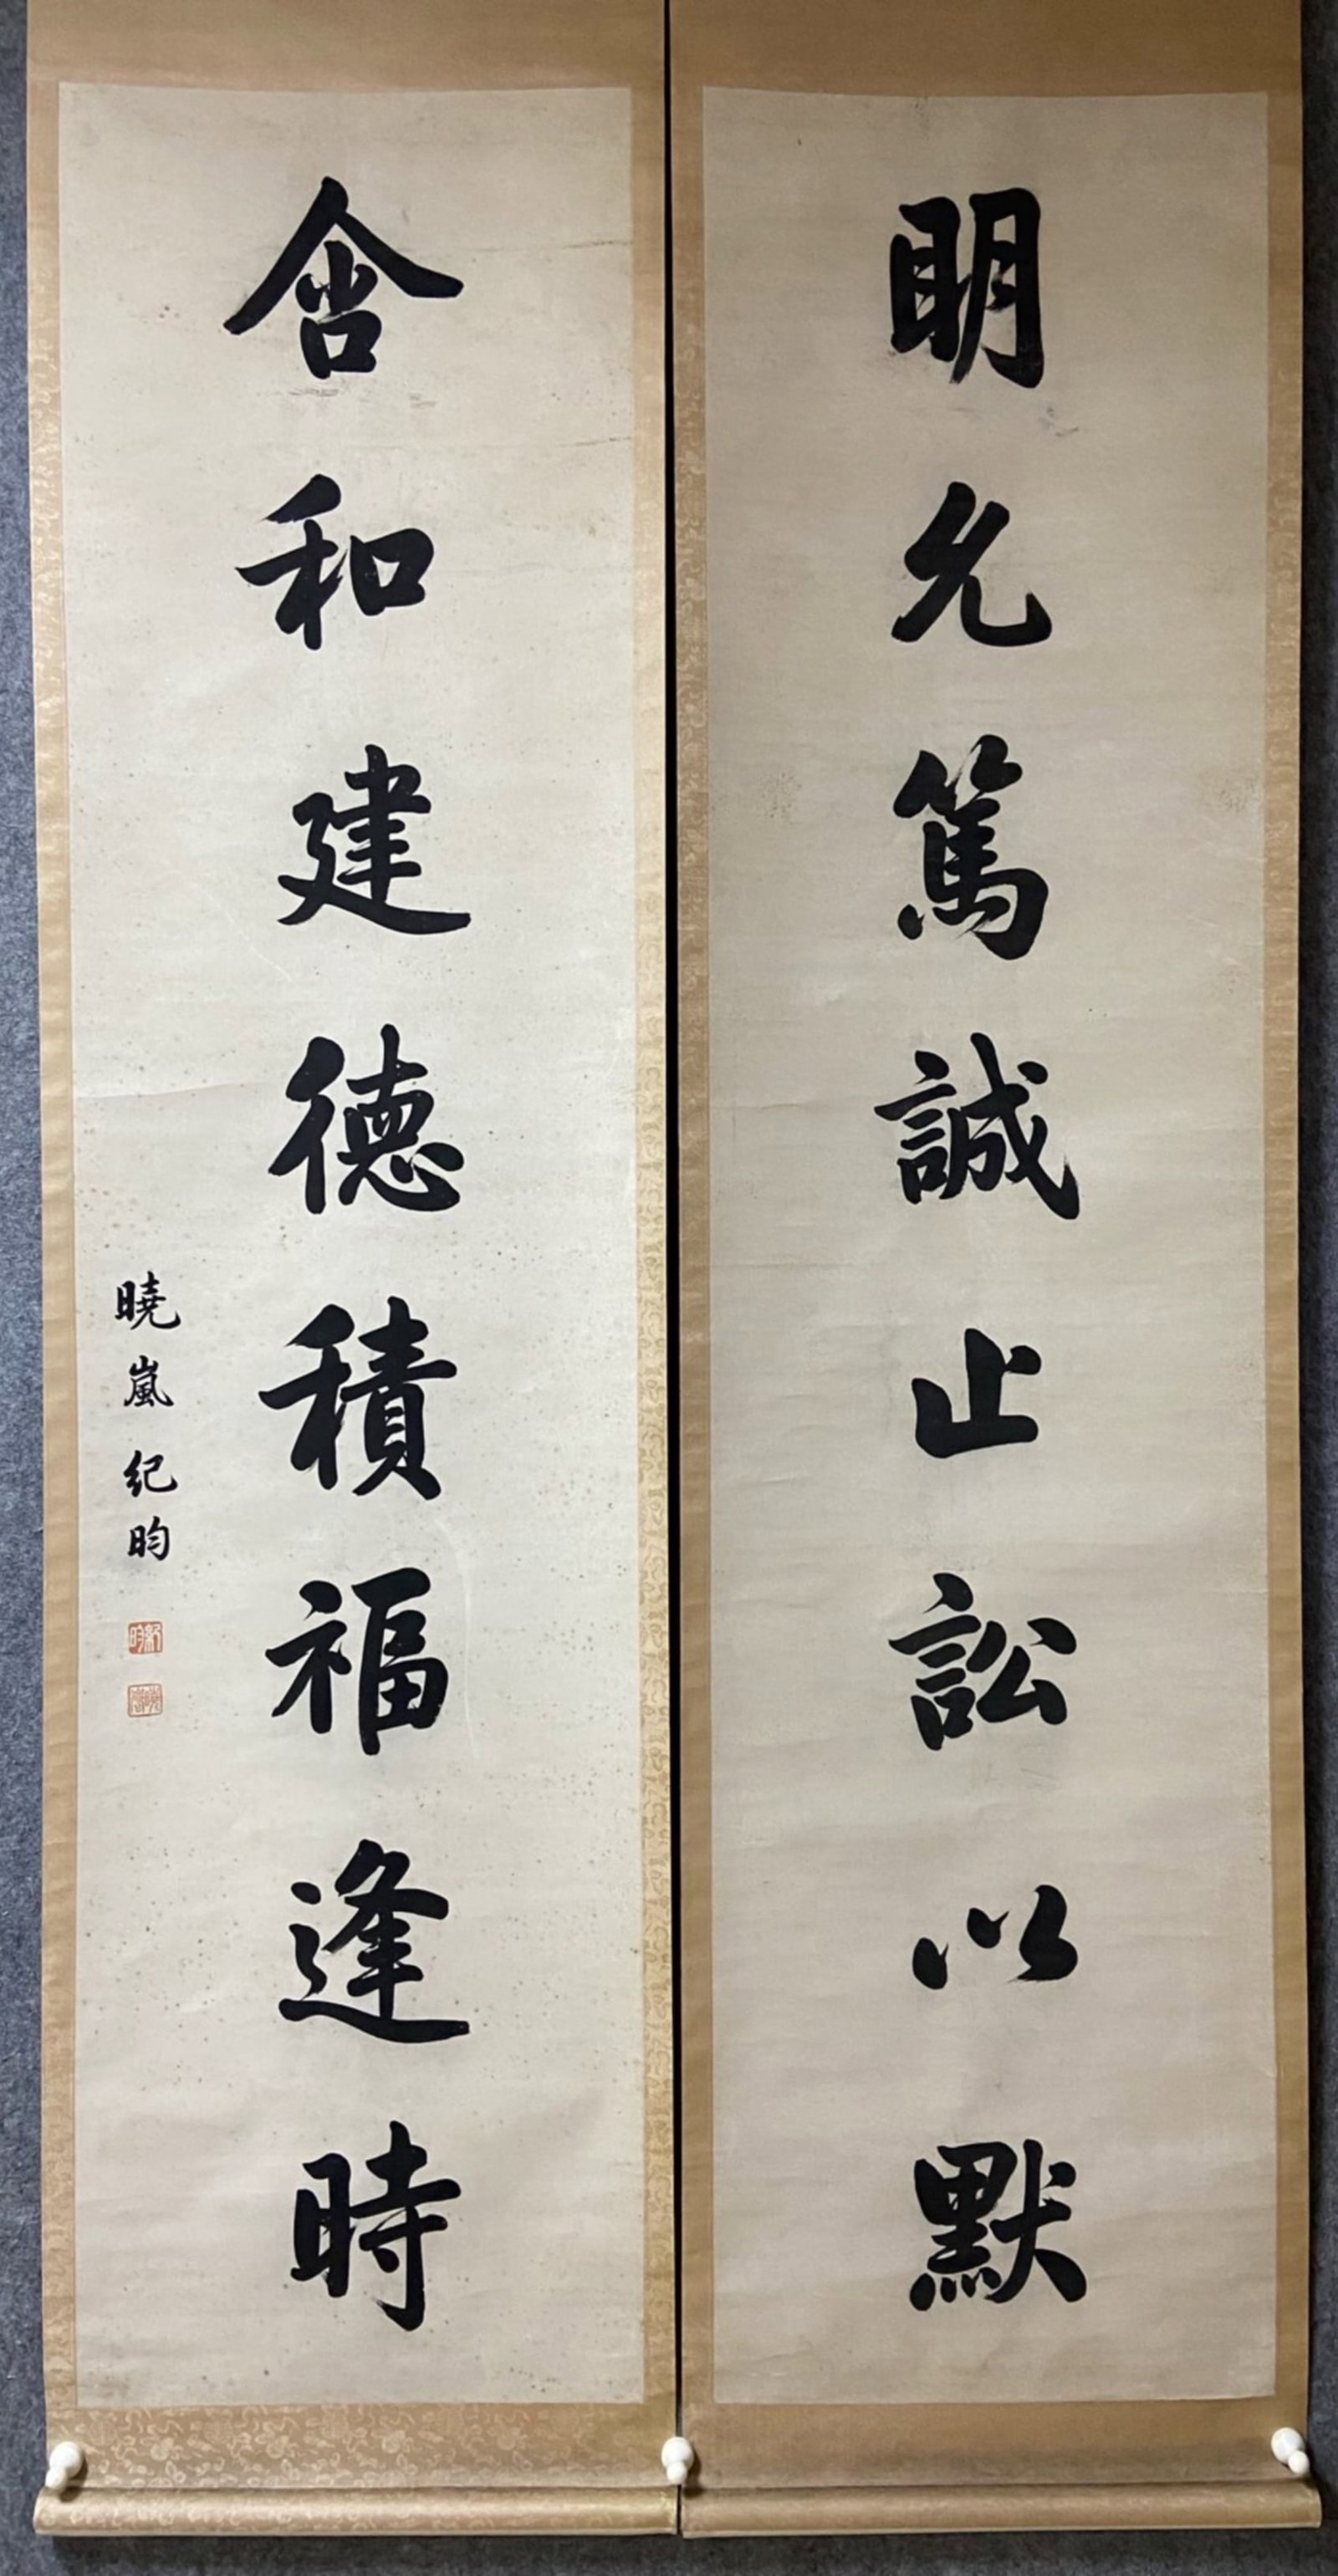 明允篤誠止訟以默
含和建德積福逢時
曉嵐紀昀
紀昀